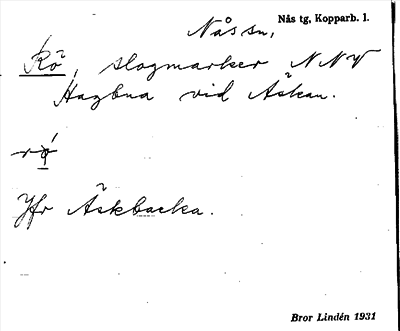 Nås sn, Nås tg, Kopparb. l.
Rö, slogmarker NNV
Hagbua vid Äskan.
rö
Jfr Äskbacka.
Bror Lindén 1931